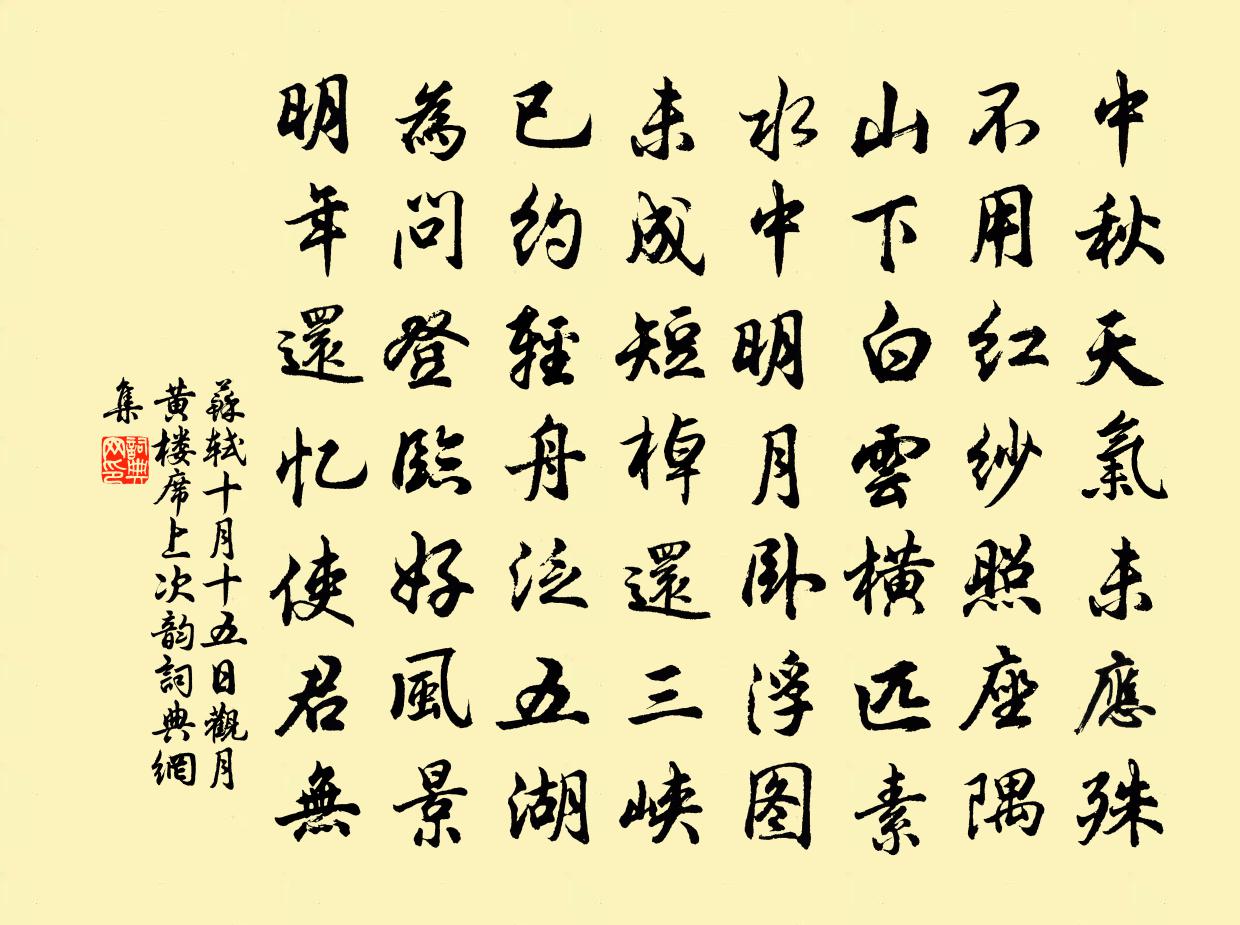 中秋天氣未應殊
不用红纱照座隅
山下白雲横匹素
水中明月卧浮图
未成短棹還三峡
已約輕舟泛五湖
為問登臨好風景
明年還忆使君無
蘇軾十月十五日觀月
黄楼席上次韵詞典網
集
詞典
网印